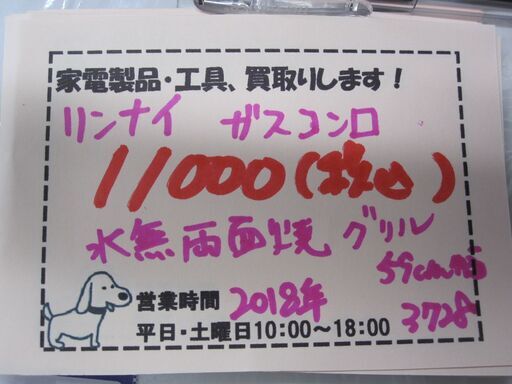 家電製品・工具、買取りします!
リンナイ ガスコンロ
11000(税込)
水無両面焼グリル
59cm
営業時間 2018年
平日・土曜日10:00～18:00 3728